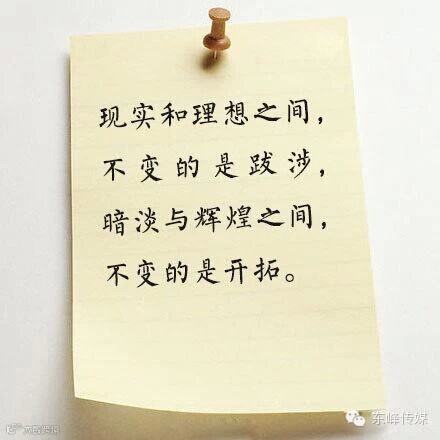 现实和理想之间，
不变的是跋涉，
暗淡与辉煌之间，
不变的是开拓。
东峰传媒